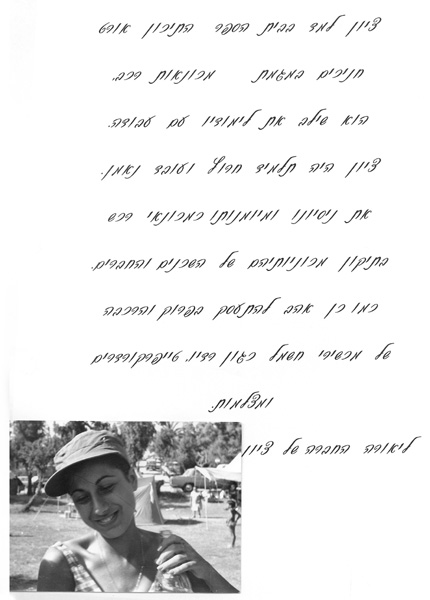 ציון למד בבית הספר התיכון אורט
חניכים במגמת מכונאות רכב.
הוא שילב את לימודיו עם עבודה.
ציון היה תלמיד חרוץ ועובד נאמן.
את ניסיונו ומיומנותו כמכונאי רכש
בתיקון מכוניותיהם של השכנים והחברים.
כמו כן אהב להתעסק בפרוק והרכבה
של מכשירי חשמל כגון רדיו, טייפרקורדרים
ומצלמות.
ליאורה החברה של ציון